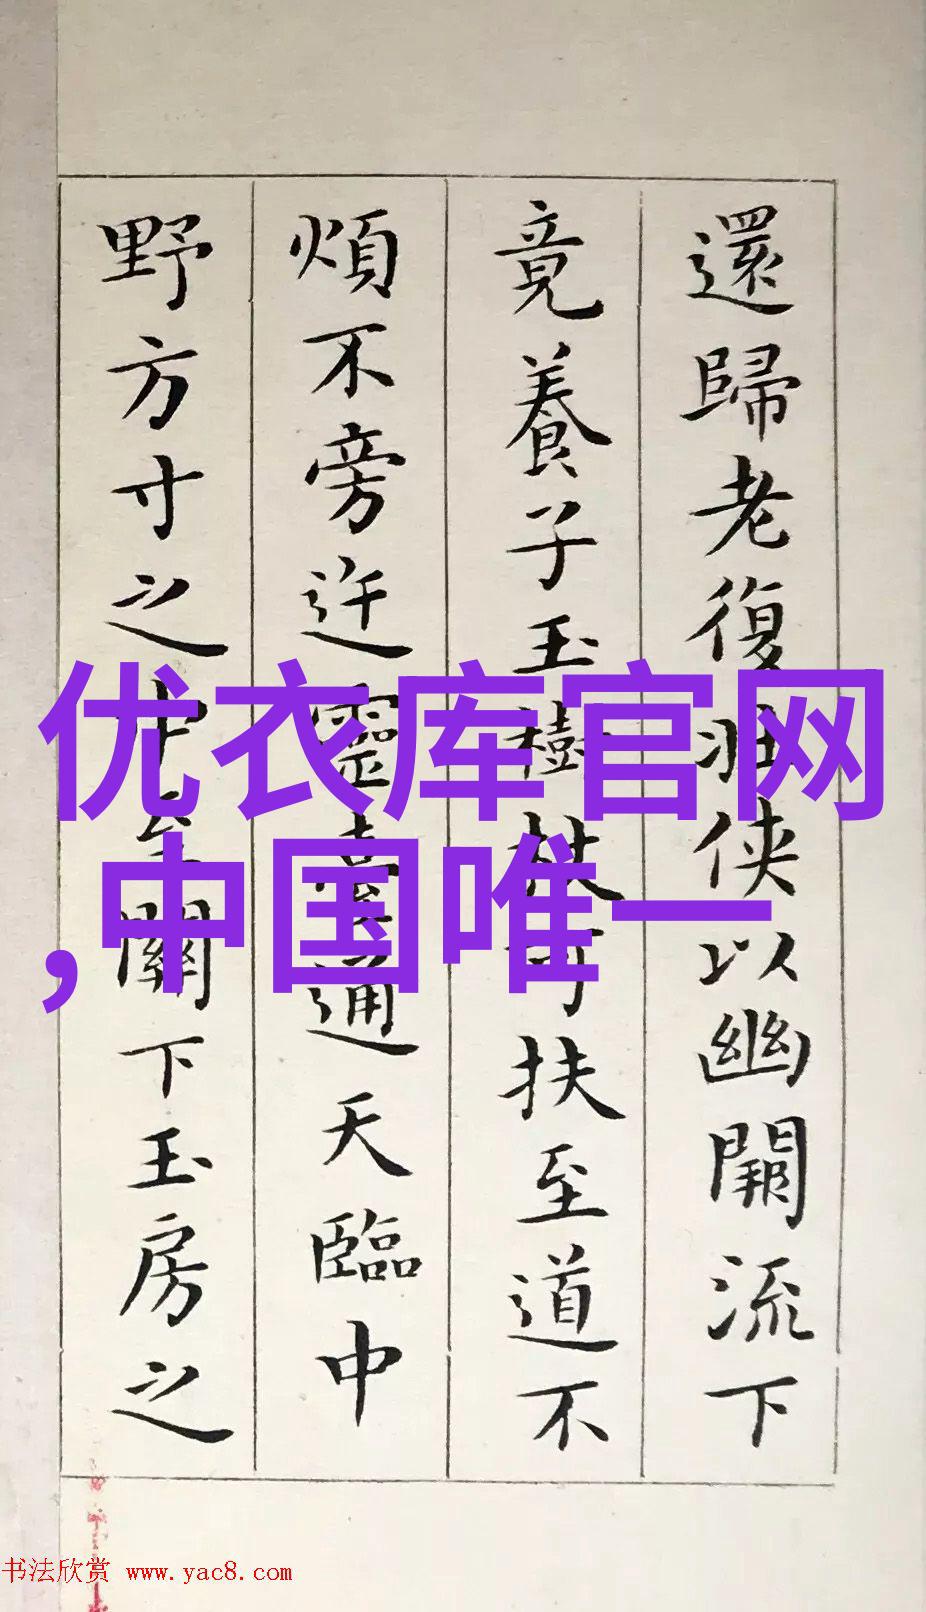 還歸老復壯俠以幽闕流下
竟養子玉樹杖可扶至道不
煩不旁迕靈臺通天臨中
野方寸之中至關下玉房之
优衣库官网
,中国唯一
书法欣赏 www.yac8.com